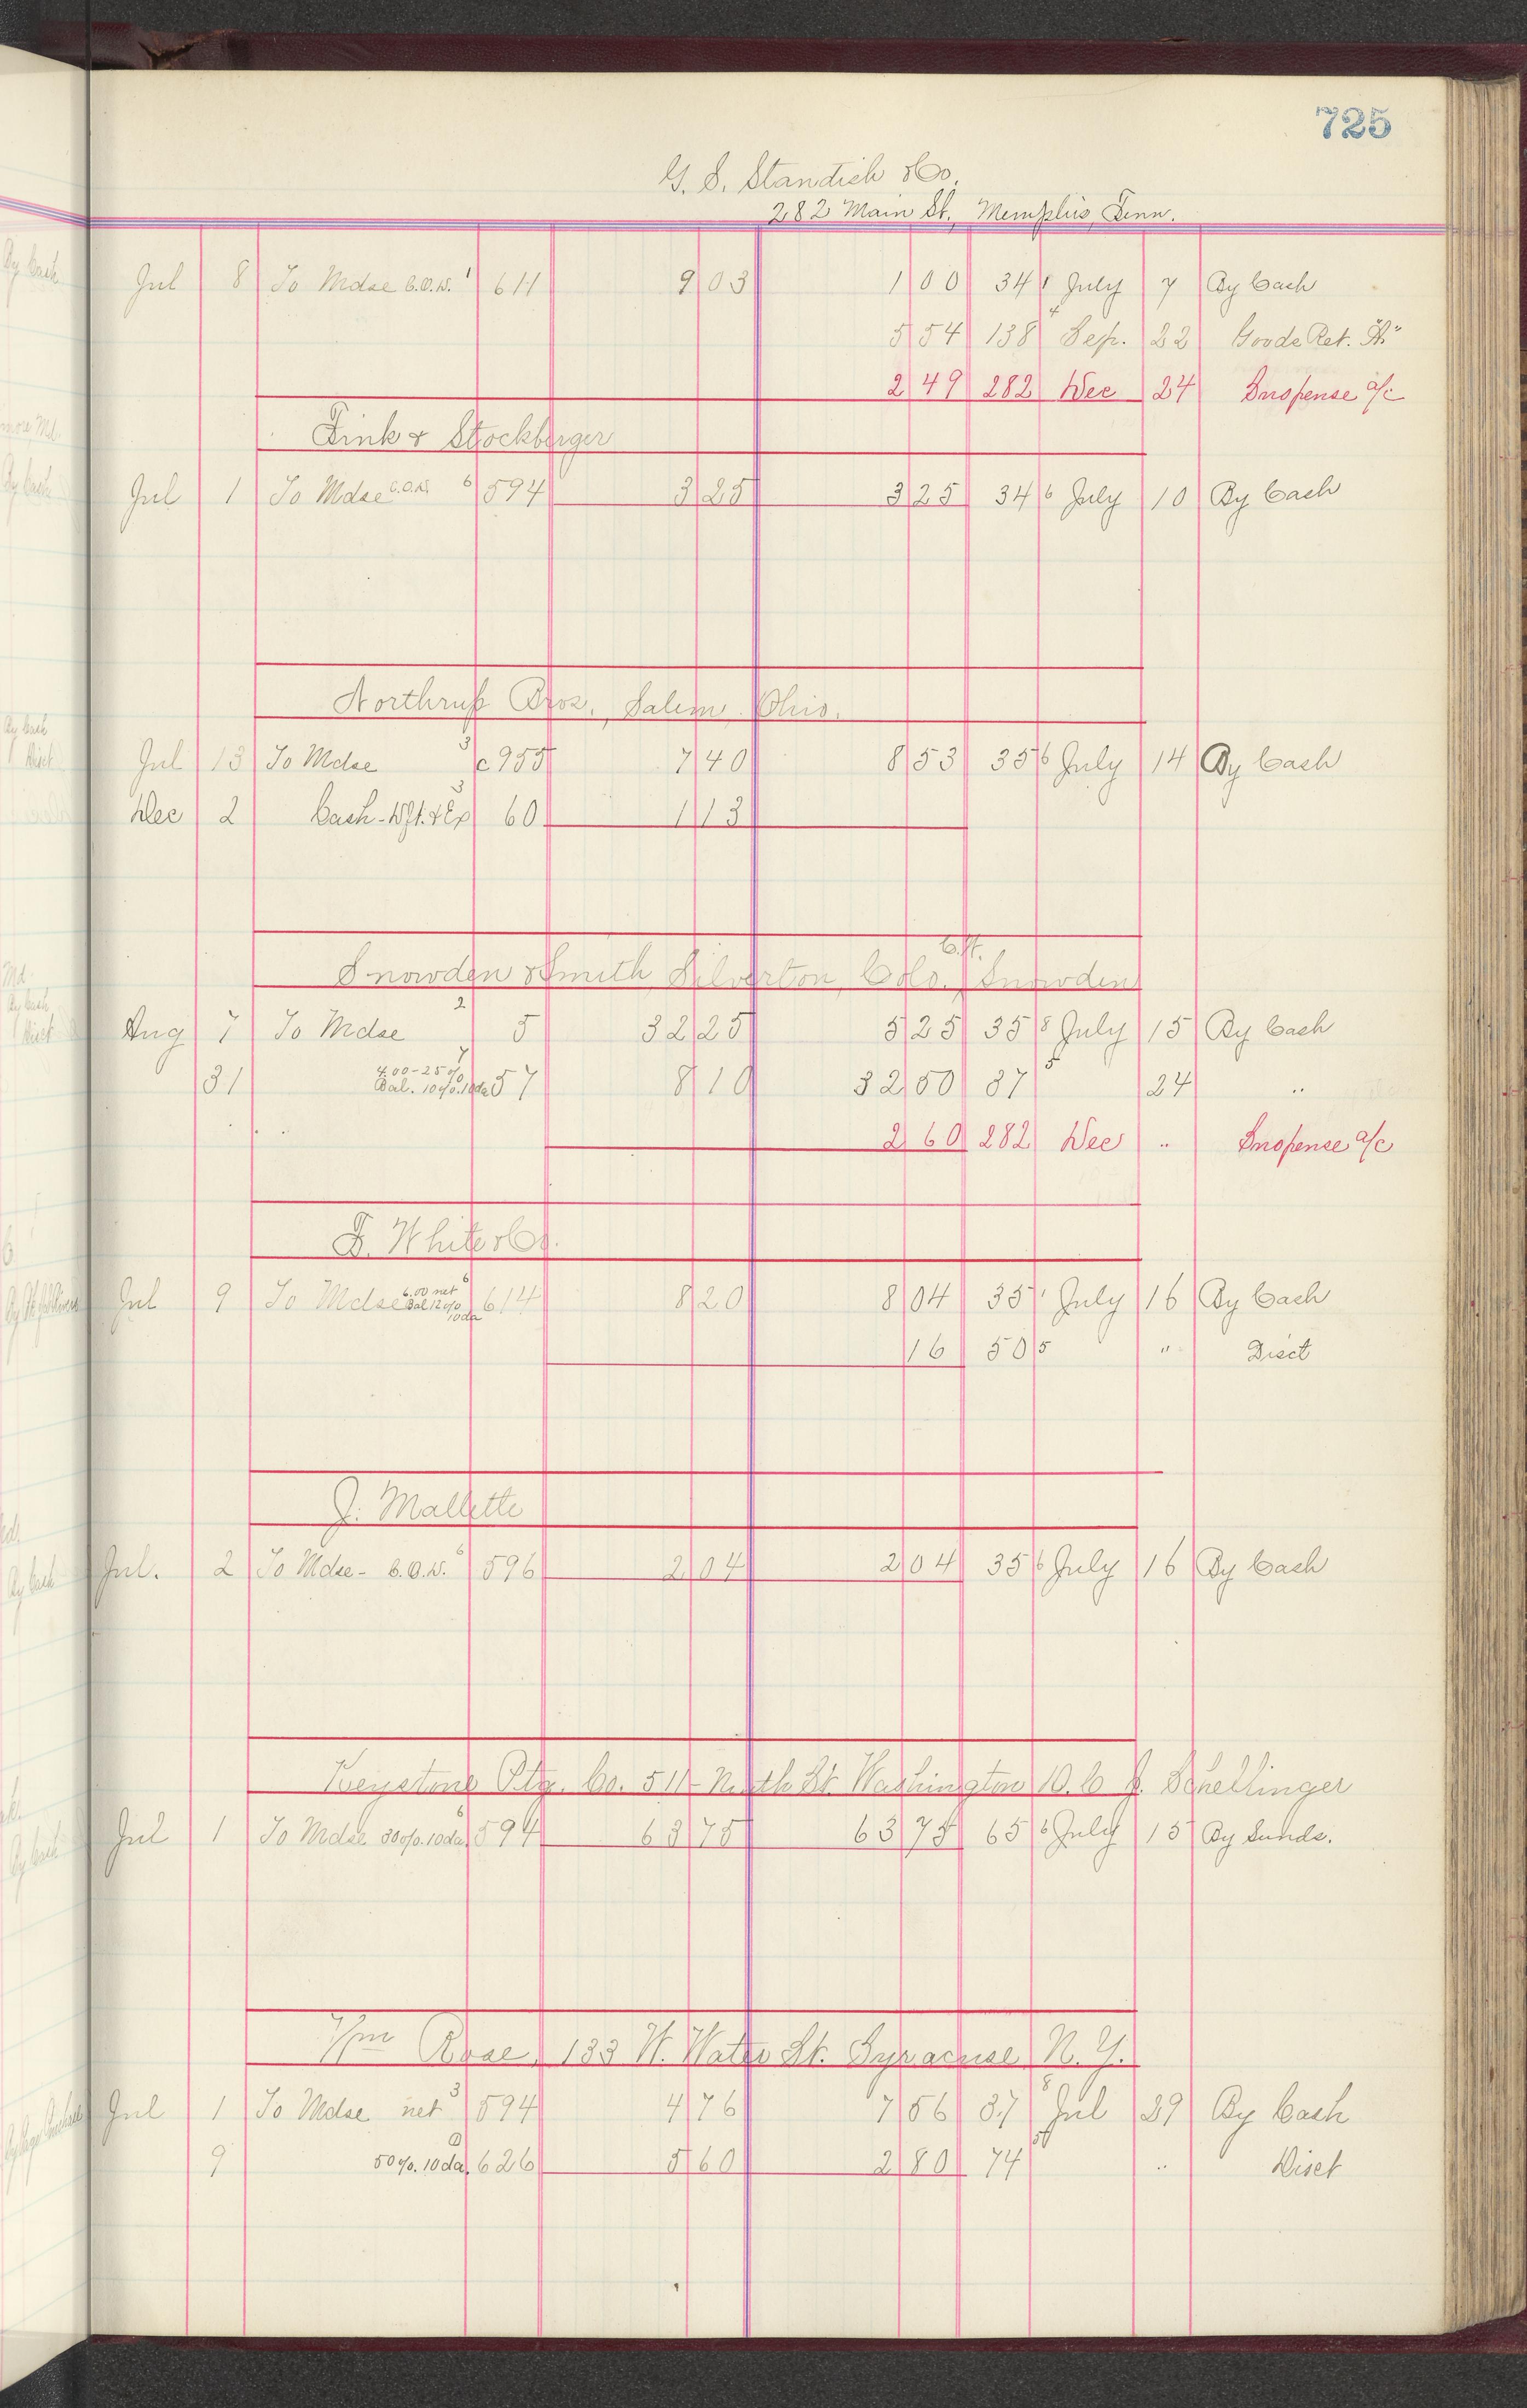 725
G. S. Standish & Co.
282 Main St., Memphis, Tenn.
Jul 8 To Mdse C.O.D. 1 611 9 03 1 00 34 1 July 7 By Cash
5 54 138 4 Sep. 22 Goods Ret. "A"
2 49 282 Dec 24 Suspense a/c
Fink & Stockberger
Jul 1 To Mdse C.O.D. 6 594 3 25 3 25 34 6 July 10 By Cash
Northrup Bros., Salem, Ohio.
Jul 13 To Mdse 3 c955 7 40 8 53 35 6 July 14 By Cash
Dec 2 Cash-Dft. & Ex 3 60 1 13
C.H.
Snowden & Smith Silverton, Colo. Snowden
Aug 7 To Mdse 2 5 32 25 5 25 35 8 July 15 By Cash
31 4.00-25% Bal. 10%.10da 7 57 8 10 32 50 37 5 24 "
2 60 282 Dec " Suspense a/c
F. White & Co.
Jul 9 To Mdse 6.00 net Bal 12% 10da 6 614 8 20 8 04 35 1 July 16 By Cash
16 50 5 " Disct
J. Mallette
Jul. 2 To Mdse- C.O.D. 6 596 2 04 2 04 35 6 July 16 By Cash
Keystone Ptg. Co. 511- Ninth St. Washington D.C J. Schellinger
Jul 1 To Mdse 30%.10da 6 594 63 75 63 75 65 6 July 15 By Sunds.
Wm Rose, 133 W. Water St. Syracuse N.Y.
Jul 1 To Mdse net 3 594 4 76 7 56 37 8 Jul 29 By Cash
9 50%.10da. 626 5 60 2 80 74 " Disct